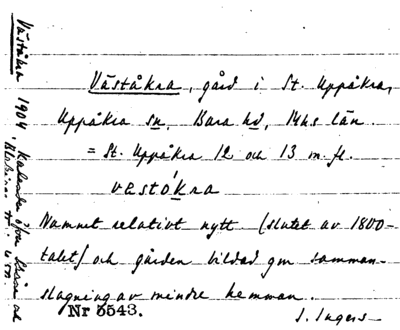 Väståkra, gård i St. Uppåkra,
Uppåkra sn, Bara hd, Mhs län.
= St. Uppåkra 12 och 13 m. fl.
vestókra
Namnet relativt nytt (slutet av 1800-
talet) och gården bildad gm samman-
slagning av mindre hemman.
Nr 5543.
I. Ingers
Väståkra 1904, Kalender